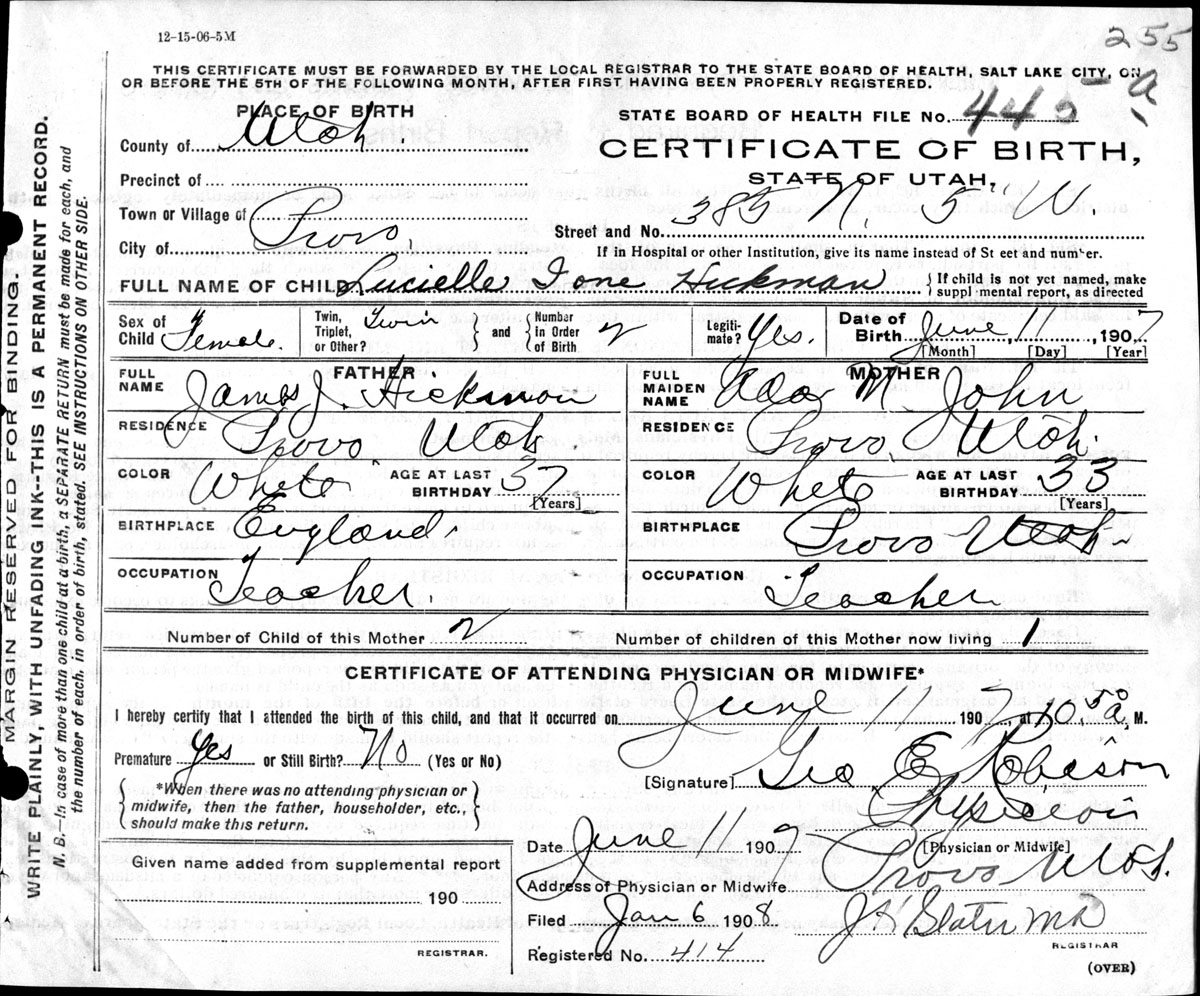 12-15-06-5M
255
THIS CERTIFICATE MUST BE FORWARDED BY THE LOCAL REGISTRAR TO THE STATE BOARD OF HEALTH, SALT LAKE CITY, ON
OR BEFORE THE 5TH OF THE FOLLOWING MONTH, AFTER FIRST HAVING BEEN PROPERLY REGISTERED.
PLACE OF BIRTH
STATE BOARD OF HEALTH FILE No. 445 - a
County of Utah.
CERTIFICATE OF BIRTH,
STATE OF UTAH.
Precinct of
Town or Village of
City of Provo.
Street and No. 385 N. 5 W.
If in Hospital or other Institution, give its name instead of St eet and number.
FULL NAME OF CHILD Lucielle Ione Hickman { If child is not yet named, make suppl mental report, as directed
Sex of Child Female. Twin, Triplet, or Other? Twin and Number in Order of Birth 2 Legiti- mate? Yes. Date of Birth June 11, 1907
[Month] [Day] [Year]
FATHER
MOTHER
FULL NAME James J. Hickman
FULL MAIDEN NAME Ada M. John
RESIDENCE Provo Utah.
RESIDENCE Provo, Utah.
COLOR White AGE AT LAST BIRTHDAY 37 [Years]
COLOR White AGE AT LAST BIRTHDAY 33 [Years]
BIRTHPLACE England.
BIRTHPLACE Provo Utah
OCCUPATION Teacher.
OCCUPATION Teacher
Number of Child of this Mother 2
Number of children of this Mother now living 1
CERTIFICATE OF ATTENDING PHYSICIAN OR MIDWIFE*
I hereby certify that I attended the birth of this child, and that it occurred on June 11 1907, at 10.50 a. M.
Premature Yes or Still Birth? No (Yes or No)
[Signature] Geo E Robison
Physician
{ *When there was no attending physician or midwife, then the father, householder, etc., should make this return. }
Date June 11 1907
[Physician or Midwife]
Given name added from supplemental report
190
REGISTRAR.
Address of Physician or Midwife Provo Utah.
Filed Jan 6 1908 J H Slater MD
REGISTRAR
Registered No. 414
(OVER)
MARGIN RESERVED FOR BINDING.
WRITE PLAINLY, WITH UNFADING INK--THIS IS A PERMANENT RECORD.
N. B.—In case of more than one child at a birth, a SEPARATE RETURN must be made for each, and
the number of each, in order of birth, stated. SEE INSTRUCTIONS ON OTHER SIDE.